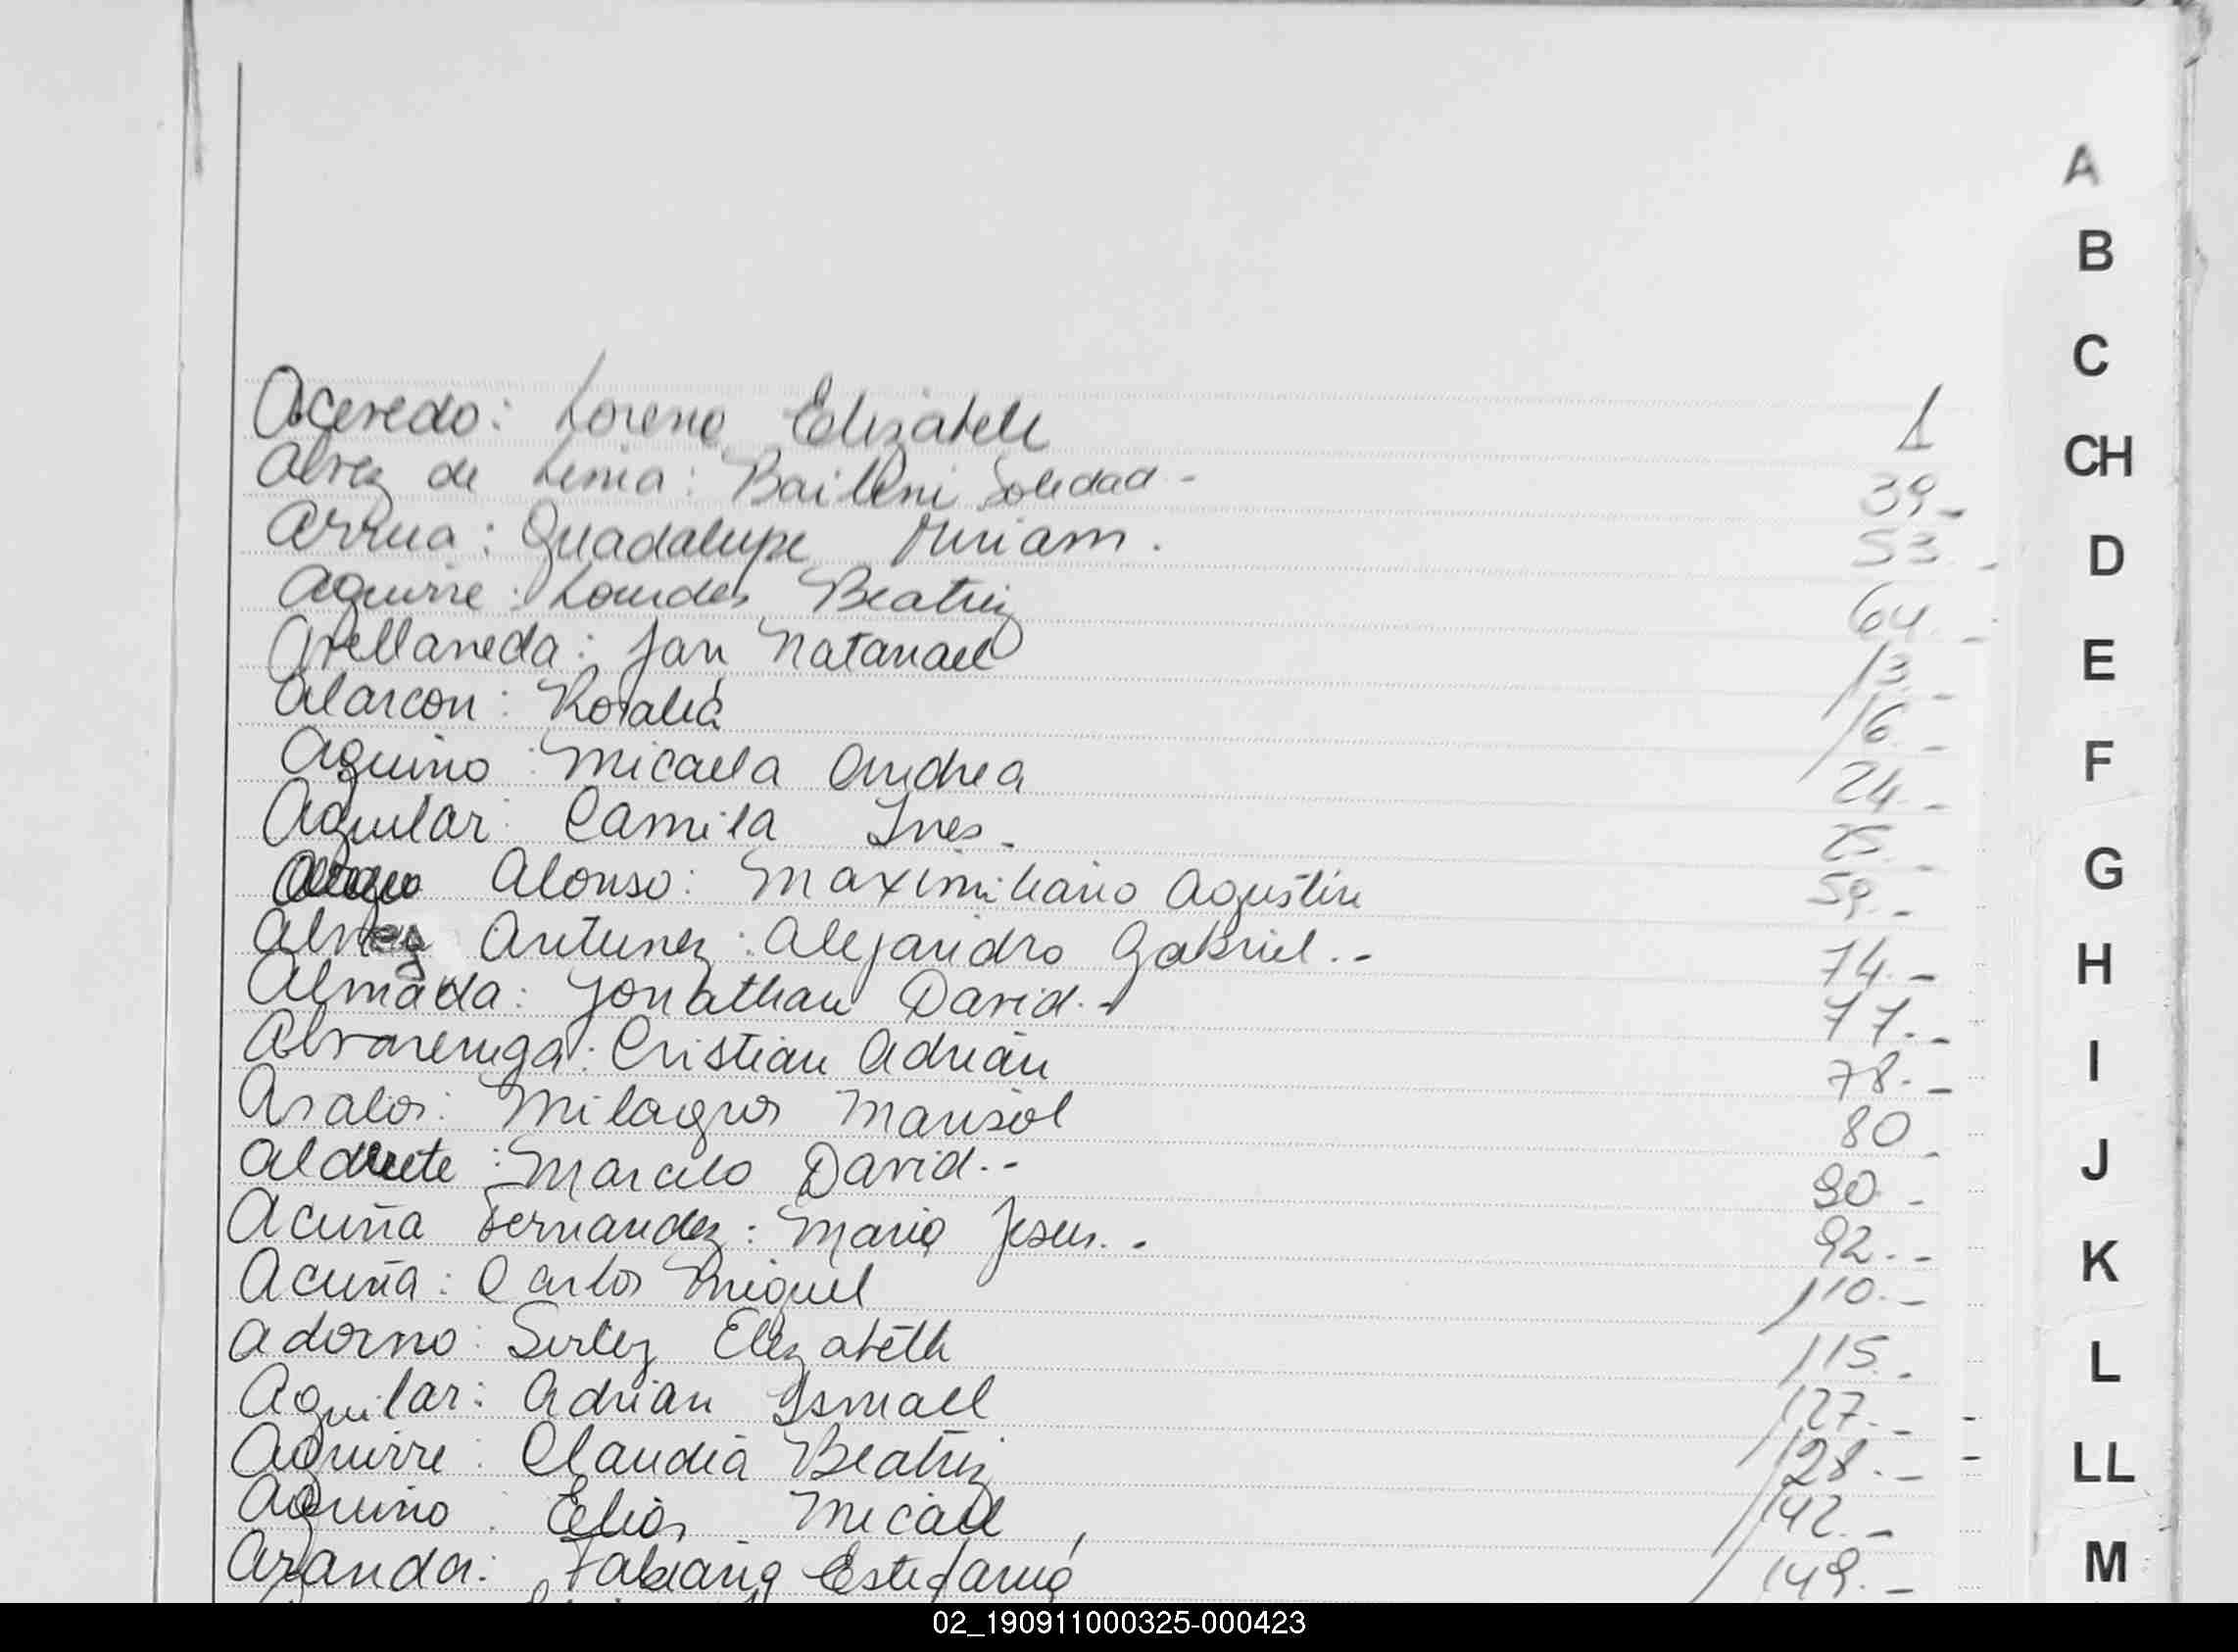 Acevedo: Lorena Elizabeth 1
Alvez de Lima: Baileni Soledad - 39-
Arrua: Guadalupe Miriam. 53.-
Aguirre: Lourdes Beatriz 64.-
Avellaneda: Jan Natanael 13.-
Alarcon: Rosalia 16.-
Aquino: Micaela Andrea 24.-
Aguilar: Camila Ines. 25.-
Alonso: Maximiliano Agustin 59.-
Alvez Antunez: Alejandro Gabriel.- 74.-
Almada: Jonathan David.- 77.-
Alvarenga: Cristian Adrián 78.-
Avalos: Milagros Marisol 80.-
Alderete: Marcelo David.- 90.-
Acuña Fernandez: Maria Jesus.- 92.-
Acuña: Carlos Miguel 110.-
Adorno: Serley Elizabeth 115.-
Aguilar: Adrian Ismael 127.-
Aguirre: Claudia Beatriz 128.-
Aquino: Elias Micael 142.-
Aranda: Fabiana Estefania 149.-
A
B
C
CH
D
E
F
G
H
I
J
K
L
LL
M
02_190911000325-000423